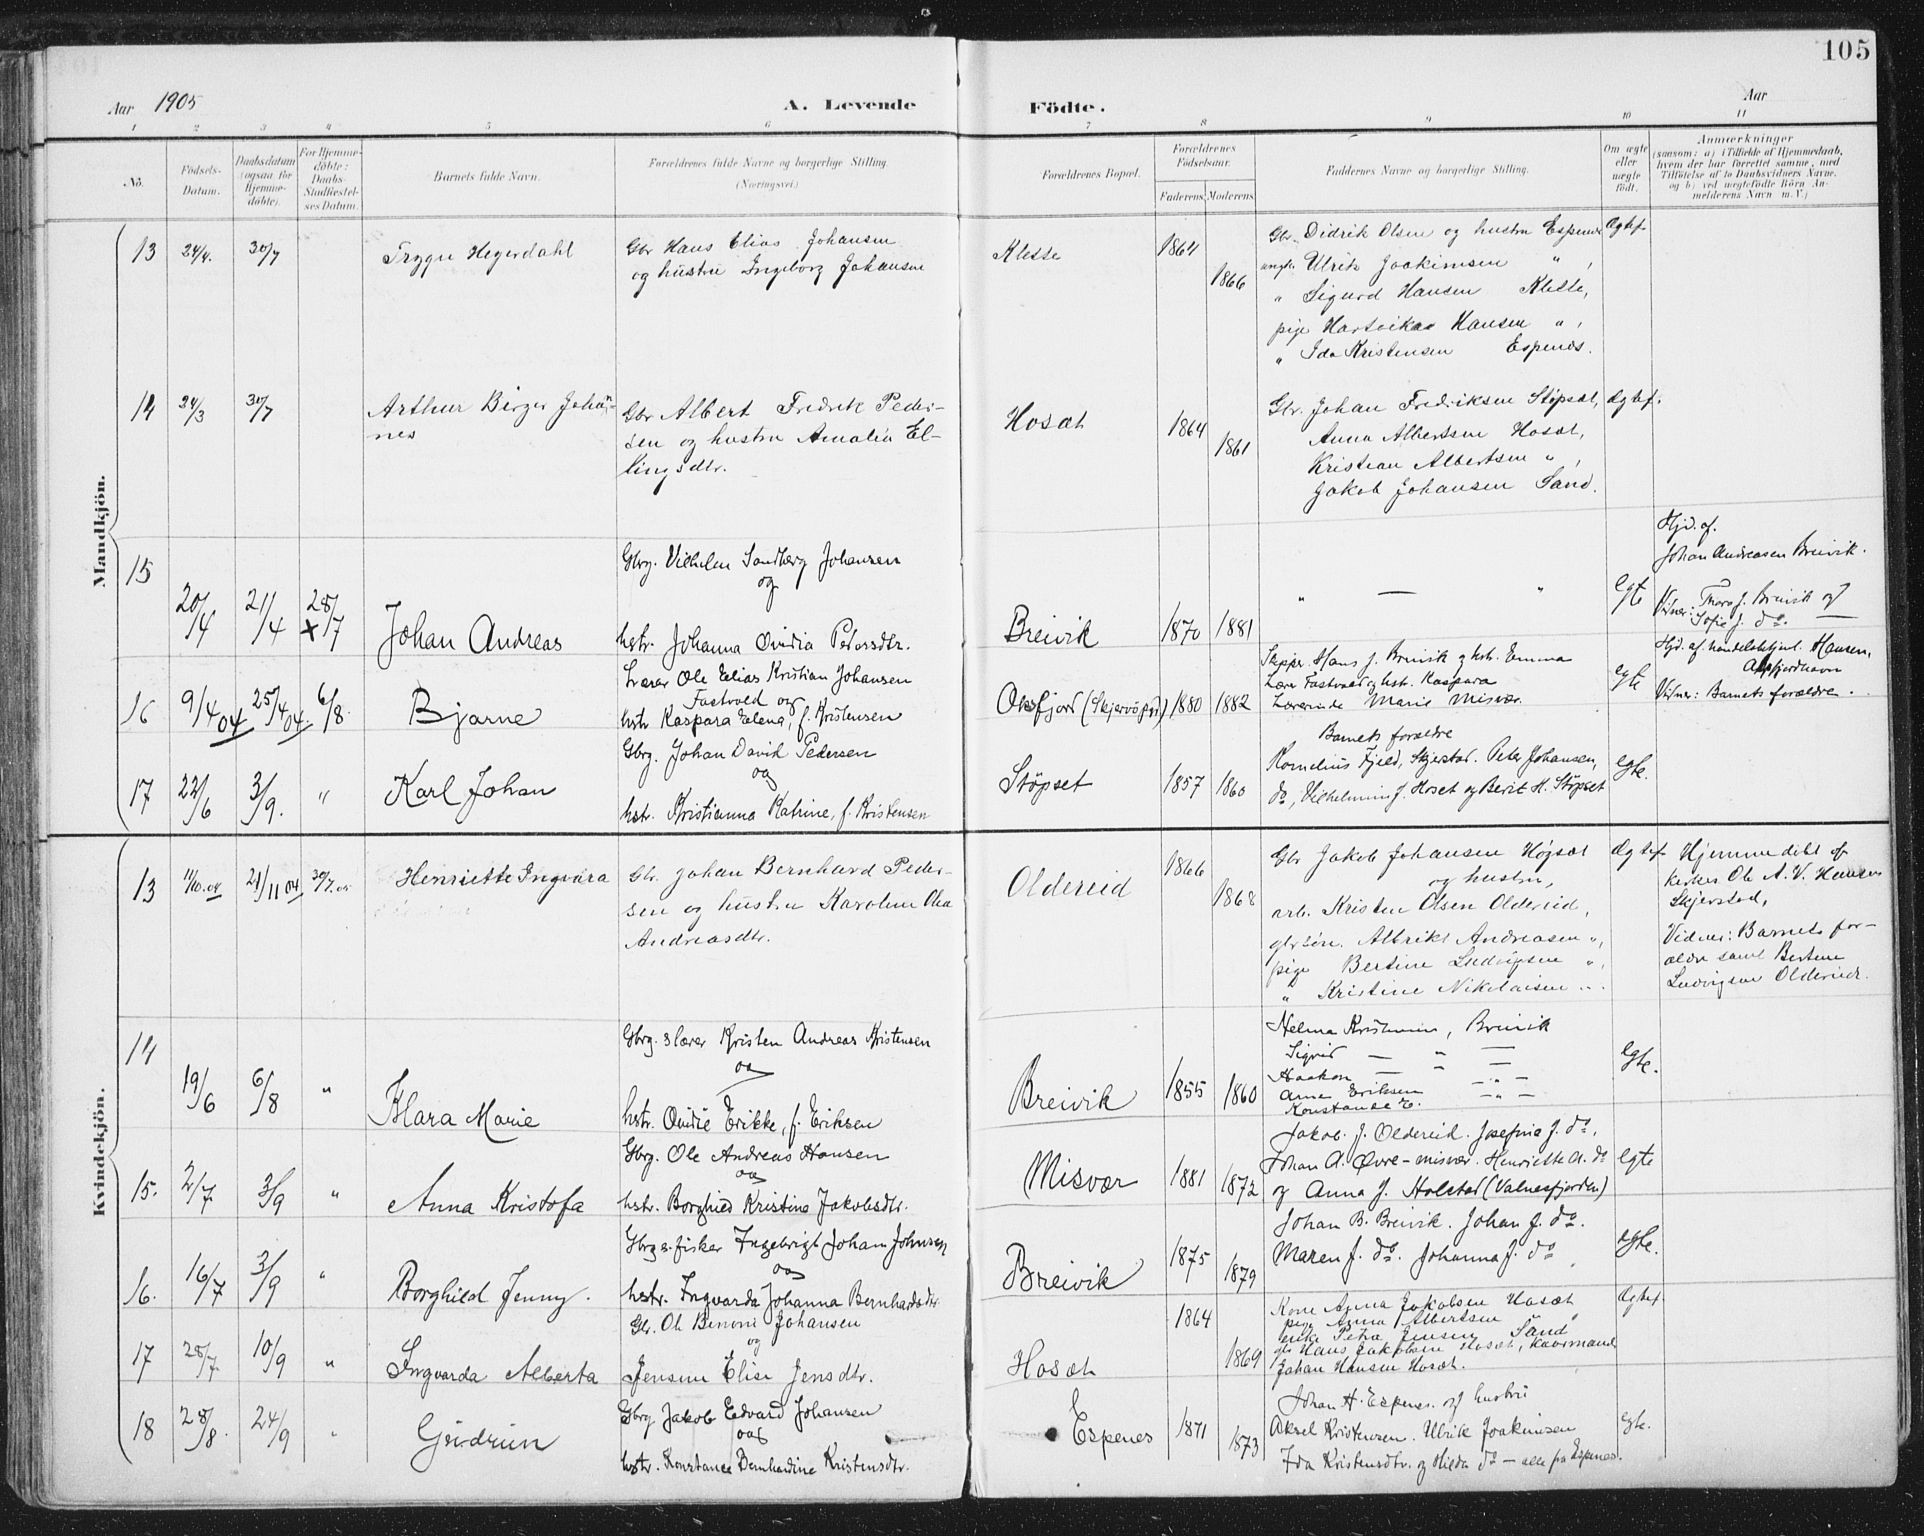 105
Aar 1905
A. Levende
Födte.
Aar
1 2 3 4 5 6 7 8 9 10 11
No.
Födsels-
Datum.
Daabsdatum
(ogsaa for
Hjemme-
döbte).
For Hjemme-
döbte:
Daabs-
Stadfæstel-
ses Datum.
Barnets fulde Navn.
Forældrenes fulde Navne og borgerlige Stilling.
(Næringsvei.)
Forældrenes Bopæl.
Forældrenes
Födselsaar.
Faderens Moderens
Faddernes Navne og borgerlige Stilling.
Om ægte
eller
uægte
födt.
Anmærkninger
(saasom: a) i Tilfælde af Hjemmedaab,
hvem der har forrettet samme, med
Tilföielse af to Daabsvidners Navne,
og b) ved uægtefödte Börn An-
melderens Navn m. V.)
Mandkjön.
13 24/4. 30/7
Trygve Hegerdahl
Gbr Hans Elias Johansen
og hustru Ingeborg Johansen
Klette
1864
1866
Gbr. Didrik Olsen og hustru Espenes
ungk. Ulrik Joakimsen " ,
" Sigurd Hansen Klette,
pige Hartvikas Hansen " ,
" Ida Kristensen Espenes.
Ægtef.
14 24/3 30/7
Arthur Birger Johan-
nes
Gbr Albert Fredrik Peder-
sen og hustru Amalia El-
lingsdtr.
Hosæt
1864
1861
Gbr. Johan Fredriksen Støpset,
Anna Albertsen Hosæt,
Kristian Albertsen " ,
Jakob Johansen Sand.
Ægtef.
15
20/4 21/4 28/7 x
Johan Andreas
Gbrg. Vilhelm Sandberg Johansen
og
hstr. Johanna Ovidia Pedersdtr.
Breivik
1870 1881
" — "
Egte
Hjd. af.
Johan Andreasen Breivik.
Vidner: Thora J. Breivik og
Sofie J. do. —
16 9/4 04 25/4 04. 6/8
Bjarne
Lærer Ole Elias Kristian Johansen
Fastvold og
hstr Kaspara Elena, f. Kristensen
Oksfjord (Skjervö pgd.)
1880 1882
Skipper Hans J. Breivik og hstr. Emma
Lærer Fastvold og hst. Kaspara
Lærerinde Marie Misvær.
Barnets forældre
egte
Hjd. af handelsbetjent Hansen,
Vidner: Barnets forældre.
17 22/6 3/9. "
Karl Johan
Gbrg. Johan David Pedersen
og
hstr. Kristianna Katrine, f. Kristensen
Støpset
1857 1860
Kornelius Fjeld, Skjerstad. Peter Johansen,
do, Vilhelmine J. Hoset og Berit H. Støpset
egte.
Kvindekjön.
13 11/10.04 21/11 04 30/7.05
Henriette Ingvara
Gbr. Johan Bernhard Peder-
sen og hustru Karoline Olea
Andreasdtr.
Oldereid
1866
1868
Gbr Jakob Johansen Høgsæt
og hustru,
arb. Kristen Olsen Oldereid,
gbrsøn. Albrikt Andreasen ",
pige Bertine Ludvigsen ",
" Kristine Nikolaisen ".
Ægtef.
Hjemmedøbt af
kirkes Ole A. V. Hansen
Skjerstad,
Vidner: Barnets for-
ældre samt Bertine
Ludvigsen Oldereid.
14
19/6 6/8 "
Klara Marie
Gbrg. & lærer Kristen Andreas Kristensen
og
hstr. Ovidie Erikke, f. Eriksen
Breivik
1855 1860
Helma Kristensen, Breivik
Sigrid — " —
Haakon — " —
Anna Eriksen — " —
Konstanse E. — " —
Egte.
15. 2/7 3/9 "
Anna Kristofa
Gbrg. Ole Andreas Hansen
og
hstr. Borghild Kristine Jakobsdtr.
Misvær
1881 1872
Jakob J. Oldereid. Josefina J. do,
Johan A. Øvre-misvær. Henriette A. do
og Anna J. Holstad (Valnesfjorden)
egte
16. 16/7 3/9 "
Borghild Jenny.
Gbrg & fisker Ingebrigt Johan Johnsen
og
hstr. Ingvarda Johanna Bernhardsdtr.
Breivik
1875 1879
Johan B. Breivik. Johan J. do.
Maren J. do. Johanna J. do
egte.
17 28/7. 10/9 "
Ingvarda Alberta
Gbr. Ole Benoni Johansen
og
Jensine Elise Jensdtr.
Hosæt
1864
1869
Kone Anna Jakobsen Hosæt
pige Anna Albertsen "
enke Petra Jensen Sand
gbr Hans Jakobsen Hosæt, kavrmand
Johan Hansen Hosæt.
Ægtef.
18 28/8. 24/9 "
Gudrun
Gbrg Jakob Edvard Johansen
og
hstr. Konstance Bernhardine Kristensdtr.
Espenes
1871 1873
Johan H. Espenes. og hustru
Aksel Kristensen. Ulrik Joakimsen
Ida Kristensdtr. og Hilda do — alle fra Espenes.
Egte.